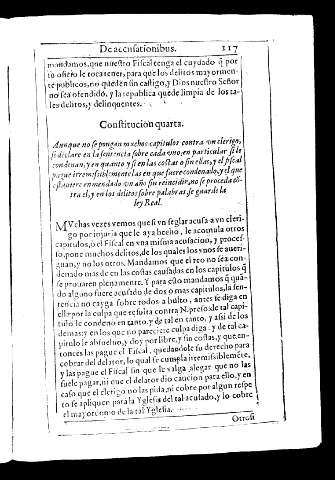 De accusationibus. 117
mandamos, que nuestro Fiscal tenga el cuydado q̃ por
su oficio le toca tener, para que los delitos mayormen-
te publicos, no queden sin castigo, y Dios nuestro Señor
no sea ofendido, y la republica quede limpia de los ta-
les delitos, y delinquentes.
Constitucion quarta.
Aunque no se pongan muchos capitulos contra vn clerigo,
se declare en la sentencia sobre cada vno, en particular si le
condenan, y en quanto y si en las costas o sin ellas, y el fiscal
pague irremisiblemente las en que fuere condenado, y el que
estuuiere enmendado vn año sin reincidir, no se proceda
tra el, y en los delitos sobre palabras, se guarde la
ley Real.
MVchas vezes vemos que si vn seglar acusa a vn cleri-
go por injuria que le aya hecho, le acomula otros
capitulos, o el Fiscal en vna misma acusacion, y proces-
so, pone muchos delitos, de los quales los vnos se aueri-
guan, y no los otros. Mandamos que el reo no sea con-
denado mas de en las costas causadas en los capitulos q̃
se prouaren plenamente. Y para esto mandamos q̃ quã-
do alguno fuere acusado de dos o mas capitulos, la sen-
tencia no cayga sobre todos a bulto, antes se diga en
ella: por la culpa que resulta contra N. preso de tal capi-
tulo le condeno en tanto, y de tal en tanto, y assi de los
demas: y en los que no pareciere culpa diga: y de tal ca-
pitulo le absueluo, y doy por libre, y sin costas, y que, en-
tonces las pague el Fiscal, quedandole su derecho para
cobrar del delator, lo qual se cumpla irremisiblemẽte,
y las pague el Fiscal sin que le valga alegar que no las
suele pagar, ni que el delator dio caucion para ello, y en
caso que el clerigo no las pida, ni cobre por algun respe
to se apliquen para la Yglesia del tal acusado, y lo cobre
el mayordomo de la tal Yglesia.
Otrosi